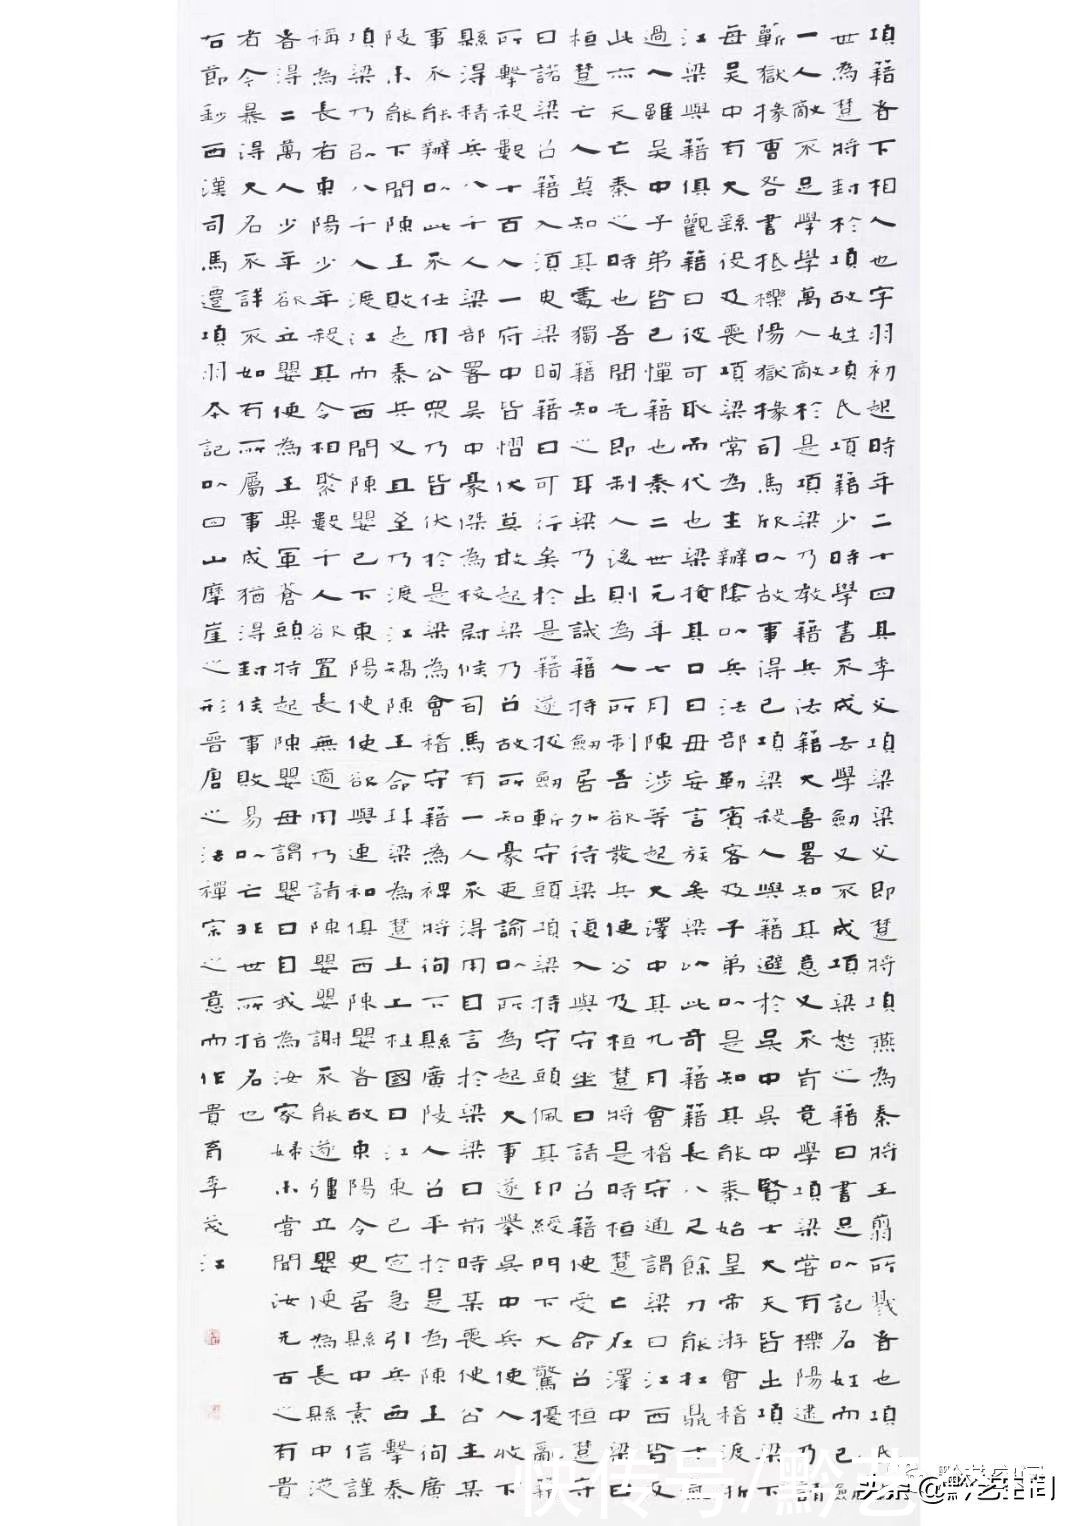 項籍者下相人也字羽初起時年二十四其季父項梁梁父即楚將項燕為秦將王翦所戮者也項氏
世為楚將封於項故姓項氏項籍少時學書不成去學劍又不成項梁怒之籍曰書足以記名姓而已劍
一人敵不足學學萬人敵於是項梁乃教籍兵法籍大喜畧知其意又不肯竟學項梁嘗有櫟陽逮乃請
蘄獄掾曹咎書抵櫟陽獄掾司馬欣以故事得已項梁殺人與籍避於吳中吳中賢士大夫皆出項梁下
每吳中有大繇役及喪項梁常為主辦陰以兵法部勒賓客及子弟以是知其能秦始皇帝游會稽渡浙
江梁與籍俱觀籍曰彼可取而代也梁掩其口曰毋妄言族矣梁以此奇籍籍長八尺餘力能扛鼎才氣
過人雖吳中子弟皆已憚籍也秦二世元年七月陳涉等起大澤中其九月會稽守通謂梁曰江西皆反
此亦天亡秦之時也吾聞先即制人後則為人所制吾欲發兵使公及桓楚將是時桓楚亡在澤中梁曰
桓楚亡人莫知其處獨籍知之耳梁乃出誡籍持劍居外待梁復入與守坐曰請召籍使受命召桓楚守
曰諾梁召籍入須臾梁眴籍曰可行矣於是籍遂拔劍斬守頭項梁持守頭佩其印綬門下大驚擾亂籍
所擊殺數十百人一府中皆慴伏莫敢起梁乃召故所知豪吏諭以所為起大事遂舉吳中兵使人收下
縣得精兵八千人梁部署吳中豪傑為校尉候司馬有一人不得用自言於梁梁曰前時某喪使公主某
事不能辦以此不任用公眾乃皆伏於是梁為會稽守籍為裨將徇下縣廣陵人召平於是為陳王徇廣
陵未能下聞陳王敗走秦兵又且至乃渡江矯陳王命拜梁為楚王上柱國曰江東已定急引兵西擊秦
項梁乃以八千人渡江而西聞陳嬰已下東陽使使欲與連和俱西陳嬰者故東陽令史居縣中素信謹
稱為長者東陽少年殺其令相聚數千人欲置長無適用乃請陳嬰嬰謝不能遂彊立嬰便為長縣中從
者得二萬人少年欲立嬰便為王異軍蒼頭特起陳嬰母謂嬰曰自我為汝家婦未嘗聞汝先古之有貴
者今暴得大名不祥不如有所屬事成猶得封侯事敗易以亡非世所指名也
右節鈔西漢司馬遷項羽本記以四山摩崖之形晉唐之法禪宗之意而作貴李茂江
快传号/黔艺
头条@黔艺空间